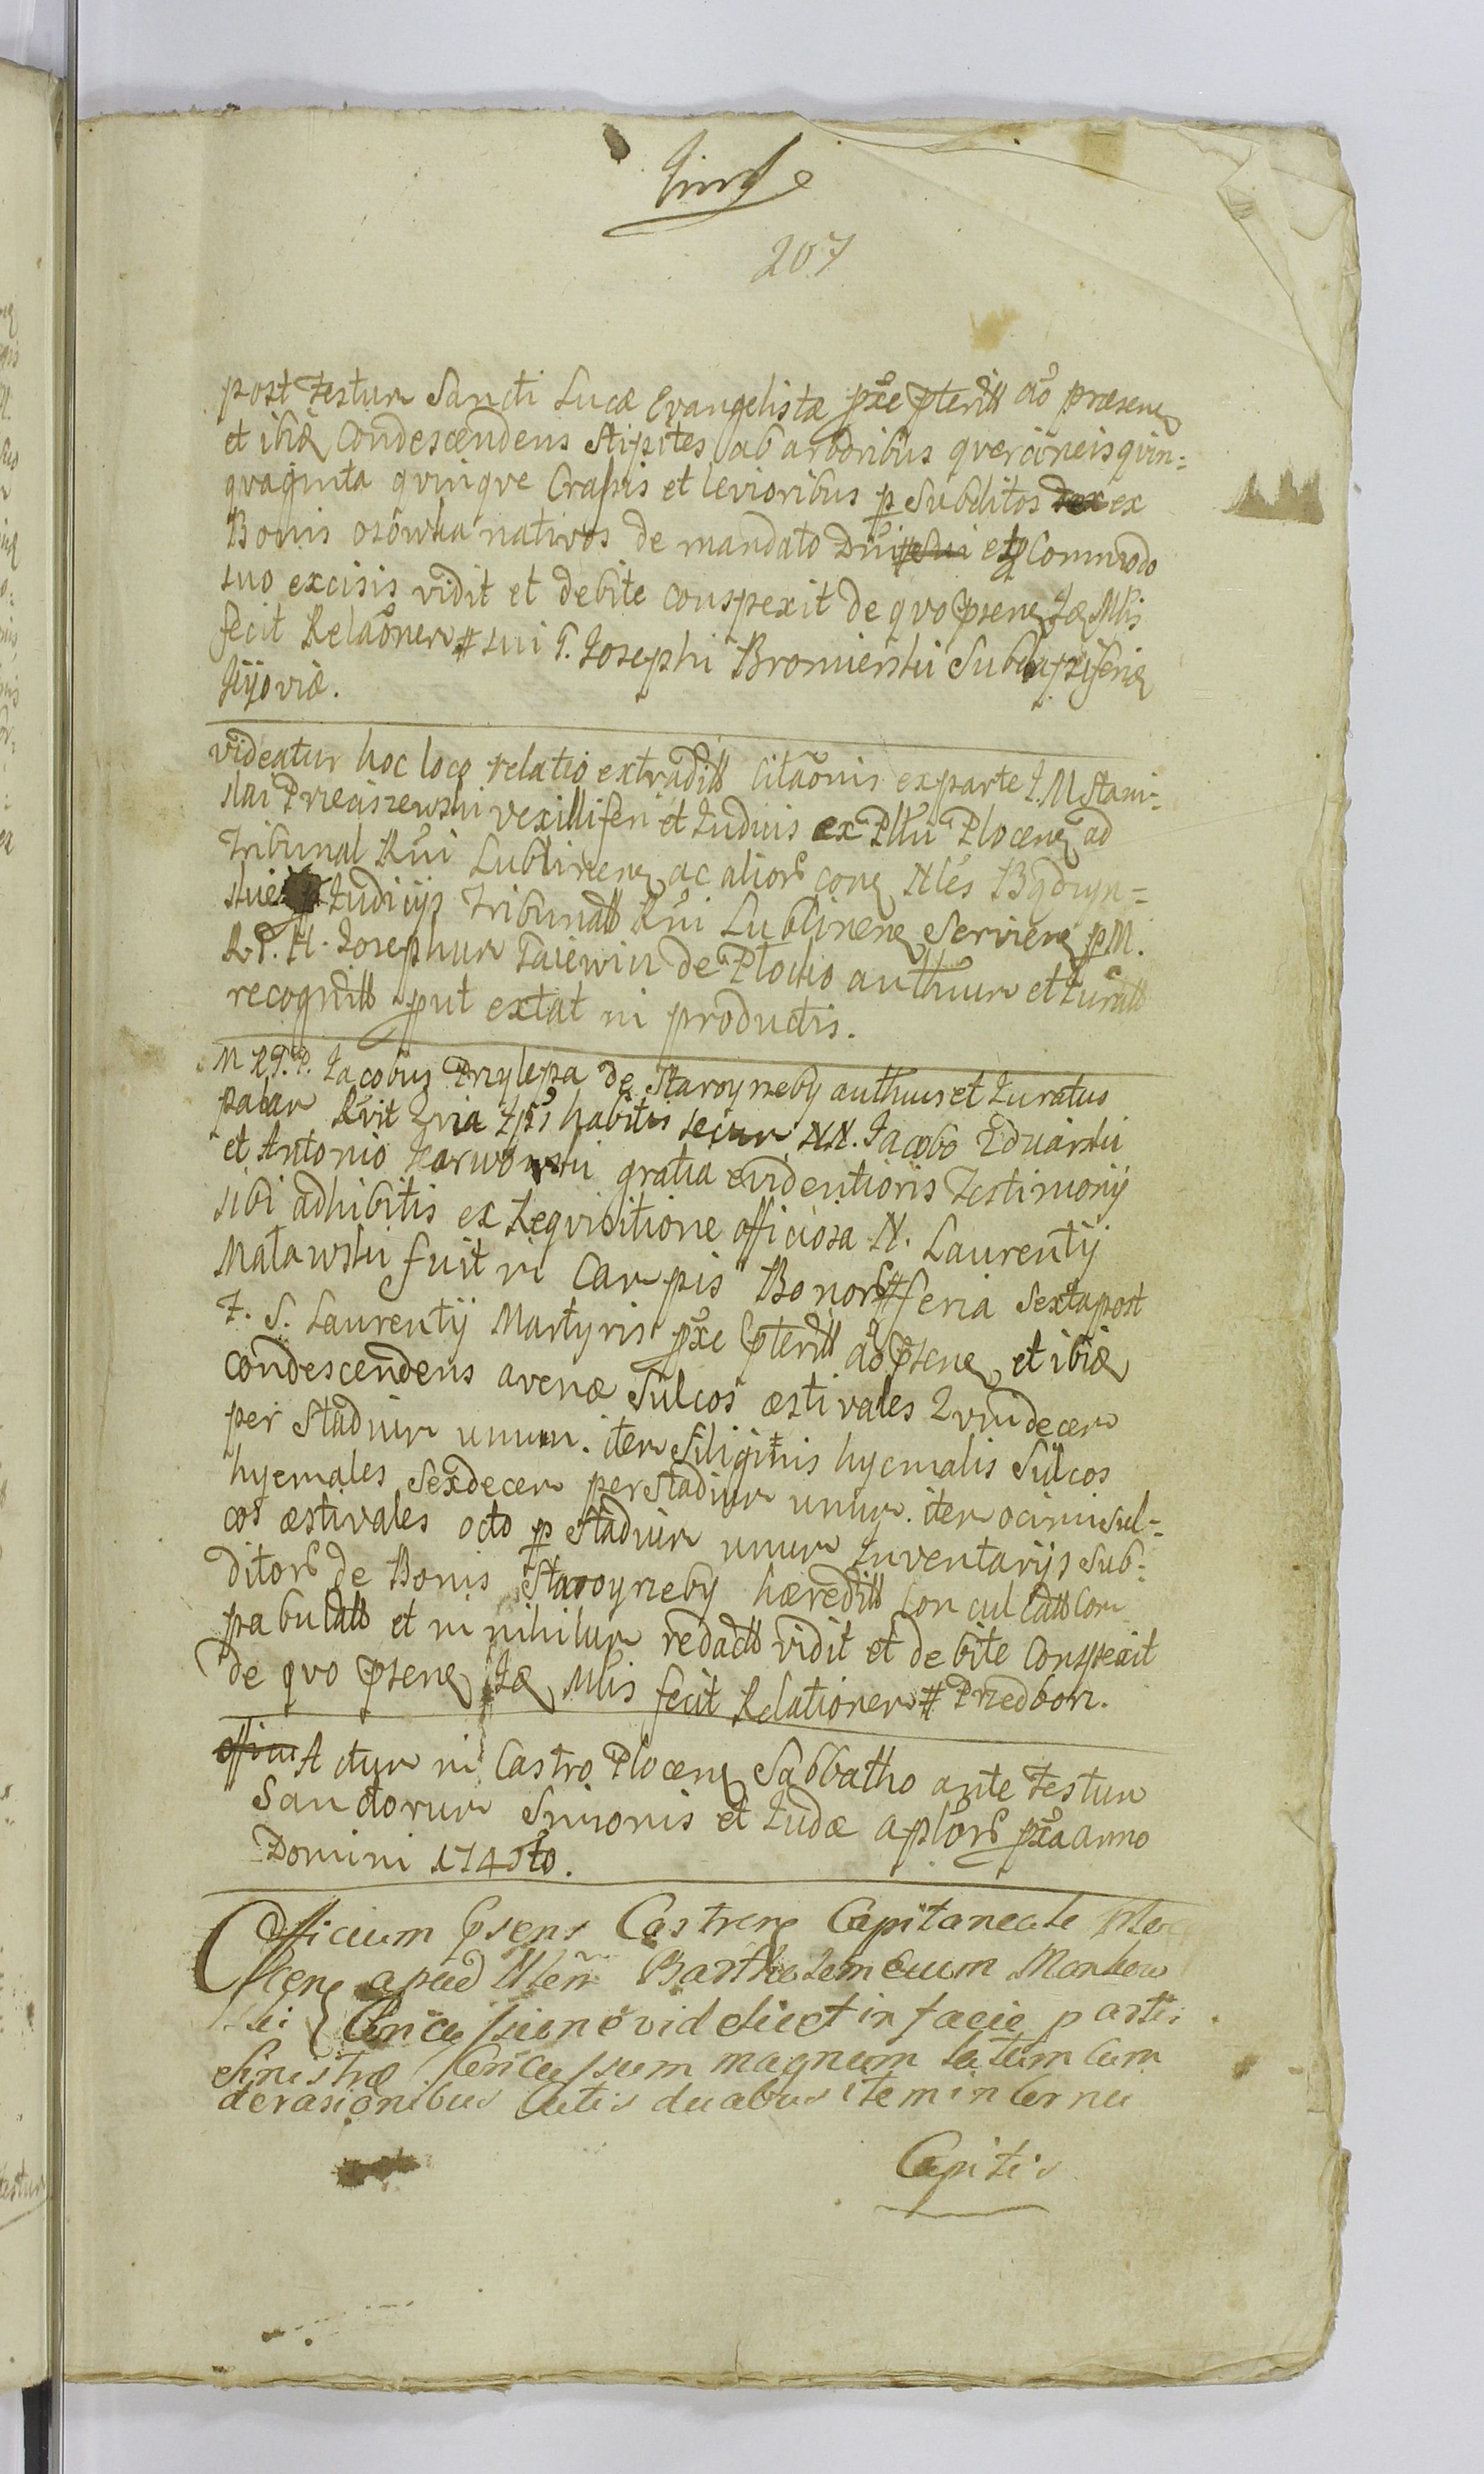 207
post Festum Sancti Lucæ Evangelistæ pxe pteritt ao præsene
et ibiq Condescendens Stipites ab arboribus quercineis quin=
quaginta quinque Crassis et levioribus p Subditos ex
Bonis osówka nativos de mandato Dni et Commodo
suo excisis vidit et debite conspexit de quo psene Jæ Mlis
fecit Relaonem # sui G. Josephi Bromierski Subdapiferiæ
Kijoviæ.
videatur hoc loco relatio extraditt Citaonis ex parte J. M Stani=
slai Przeciszewski vexilliferi et Judicis ex Pltu Plocene ad
Tribunal Rni Lublinene ac alior cone Nles
Judicijs Tribunatt Rni Lublinene Serviene p M.
R. G. H. Josephum Gaiewicz de Plocko authum et Juratt
recognitt put extat in productis.
M R G. P. Jacobus Przylepa de Staroyzeby authus et Juratus
palam Rvit Quia Ipse habitis secum NN. Jacobo Eduarski
et Antonio Karwowski gratia evidentioris Testimonij
sibi adhibitis ex Requisitione officiosa N. Laurentij
Matawski fuit in Campis Bonor # feria Sexta post
F. S. Laurentij Martyris pxe pteritt ao psene et ibiq
condescendens avenæ Sulcos æstivales Quindecem
per Stadium unum. item Siliginis hyemalis Sulcos
hyemales Sexdecem per Stadium unum. item ocimi Sul=
cos æstivales octo p Stadium unum Inventarijs Sub=
ditor de Bonis Staroyzeby hæreditt Conculcatt Com
pabulatt et in nihilum redactt vidit et debite Conspexit
de quo psene Jæ Mlis fecit Relationem # Przedborz.
Actum in Castro Plocene Sabbatho ante Festum
Sanctorum Simonis et Judæ aplor pxa anno
Domini 1745to.
Officium psens Castrene Capitaneale Plo
cene apud Nlem Bartholomeum Mankow
ski Concussione videlicet in facie partis
sinistræ Concussum magnum latum Cum
derasionibus Cutis duabus item in Cornu
Capitis